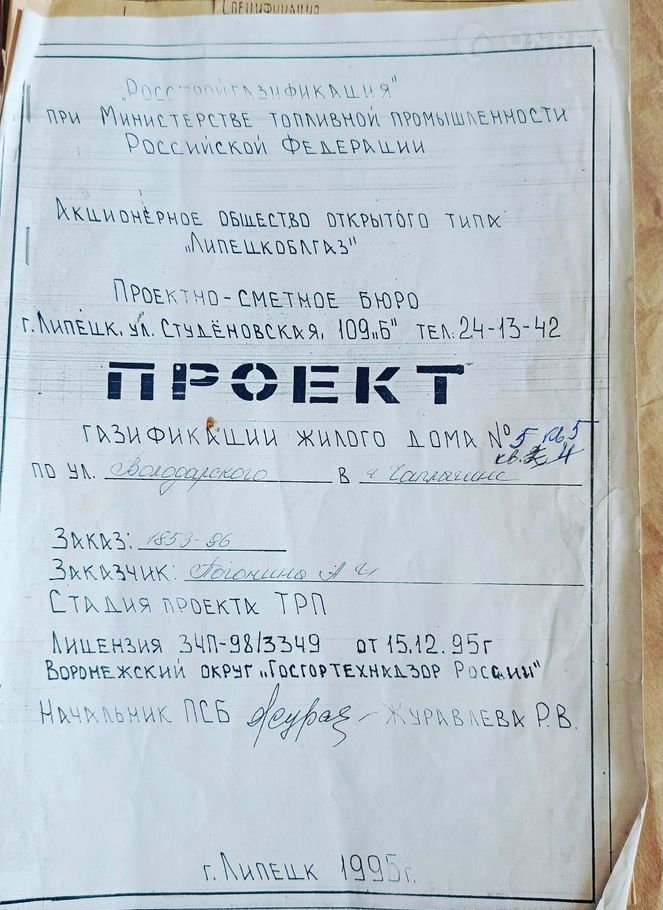 Спецификация
"Росстройгазификация"
при Министерстве топливной промышленности
Российской Федерации
Акционерное общество открытого типа
"Липецкоблгаз"
Проектно-сметное бюро
г. Липецк, ул. Студёновская, 109 "Б" тел: 24-13-42
ПРОЕКТ
газификации жилого дома № 5 кв. 5
кв. 4
по ул. Володарского в г. Чаплыгине
Заказ: 1853-96
Заказчик: А И
Стадия проекта ТРП
Лицензия 34П-98/3349 от 15.12.95г
Воронежский округ "Госгортехнадзор России"
Начальник ПСБ Журавлева Р.В.
г. Липецк 1995г.